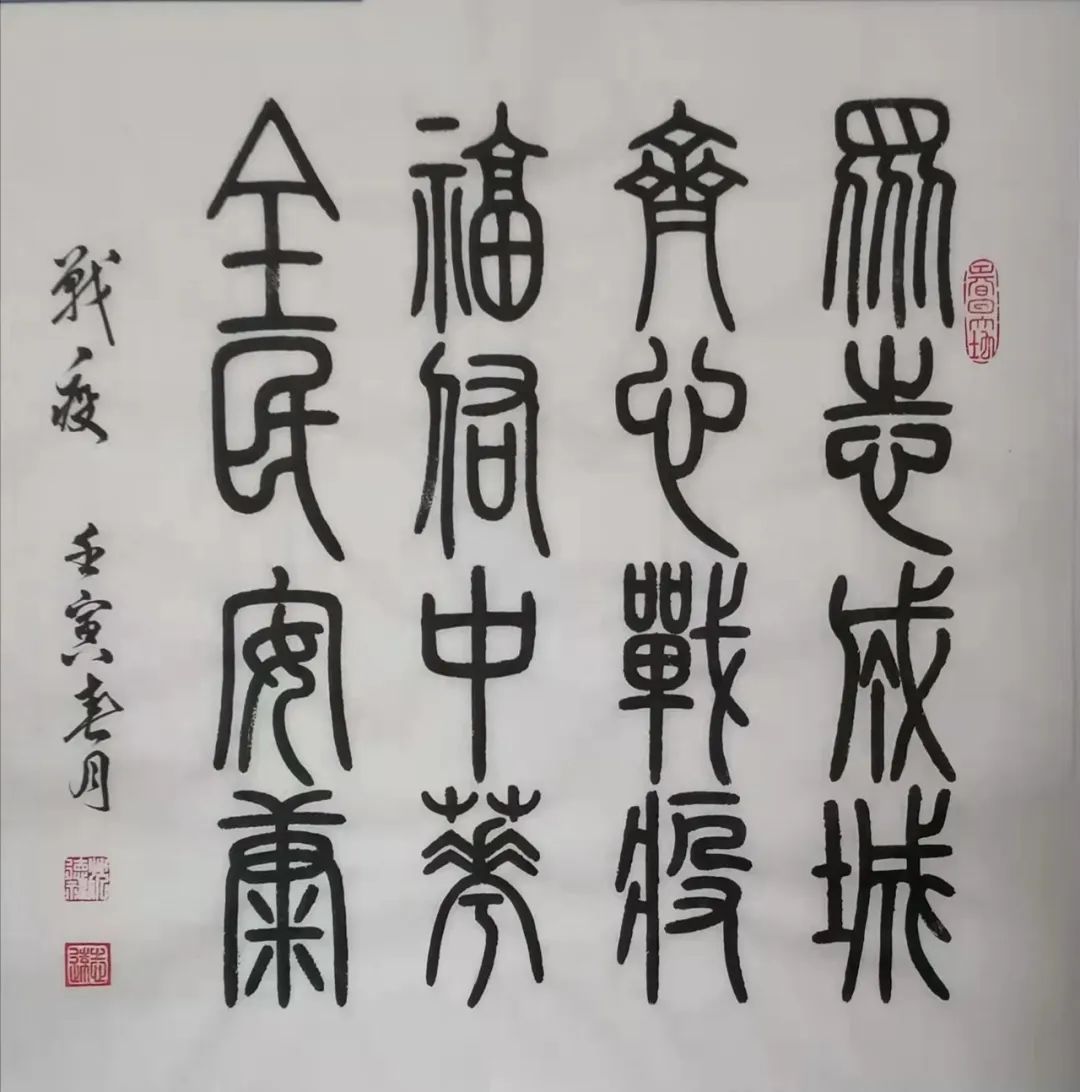 眾志成城
齊心戰疫
福佑中華
全民安康
戰疫
壬寅春月